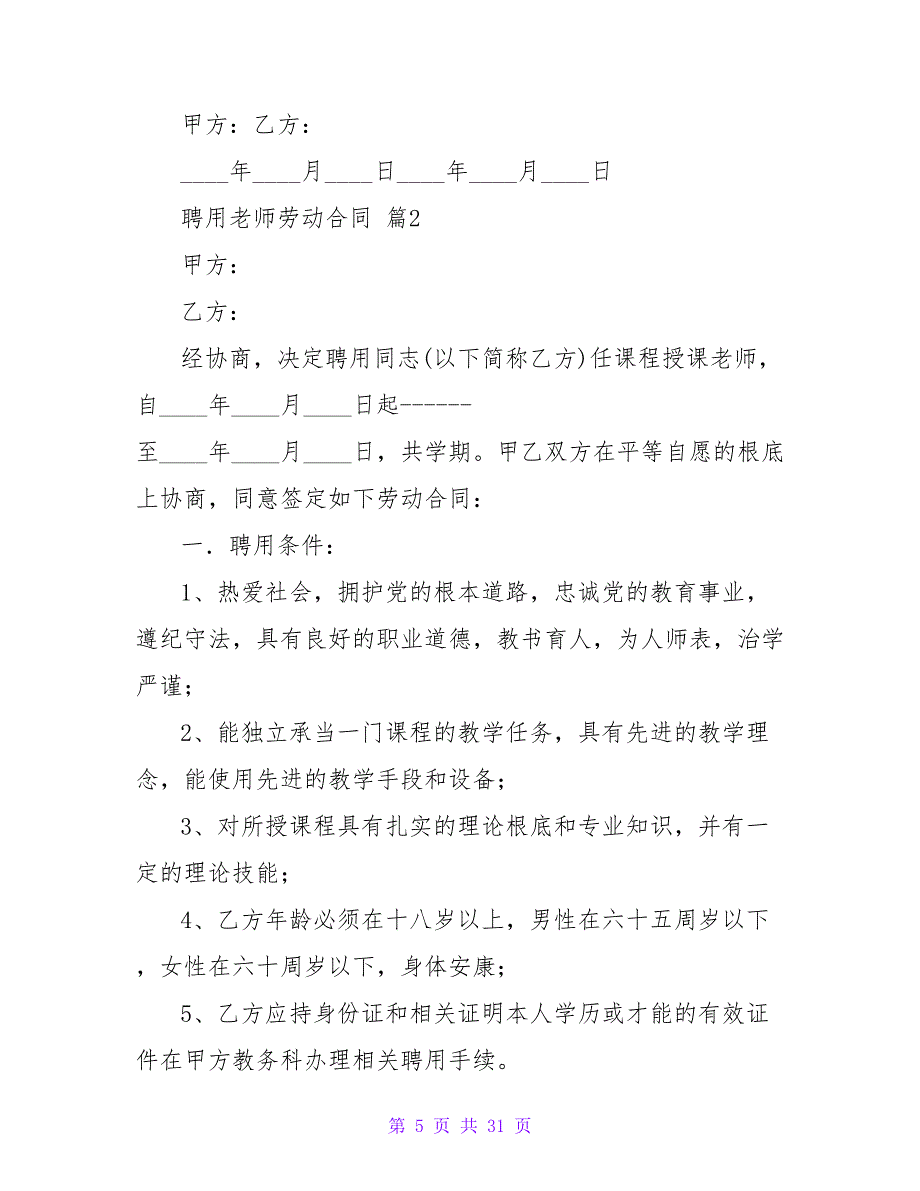 甲方：乙方：
____年____月____日____年____月____日
聘用老师劳动合同 篇2
甲方：
乙方：
经协商，决定聘用同志(以下简称乙方)任课程授课老师，
自____年____月____日起------
至____年____月____日，共学期。甲乙双方在平等自愿的根底
上协商，同意签定如下劳动合同：
一．聘用条件：
1、热爱社会，拥护党的根本道路，忠诚党的教育事业，
遵纪守法，具有良好的职业道德，教书育人，为人师表，治学
严谨；
2、能独立承当一门课程的教学任务，具有先进的教学理
念，能使用先进的教学手段和设备；
3、对所授课程具有扎实的理论根底和专业知识，并有一
定的理论技能；
4、乙方年龄必须在十八岁以上，男性在六十五周岁以下
，女性在六十周岁以下，身体安康；
5、乙方应持身份证和相关证明本人学历或才能的有效证
件在甲方教务科办理相关聘用手续。
第 5 页 共 31 页